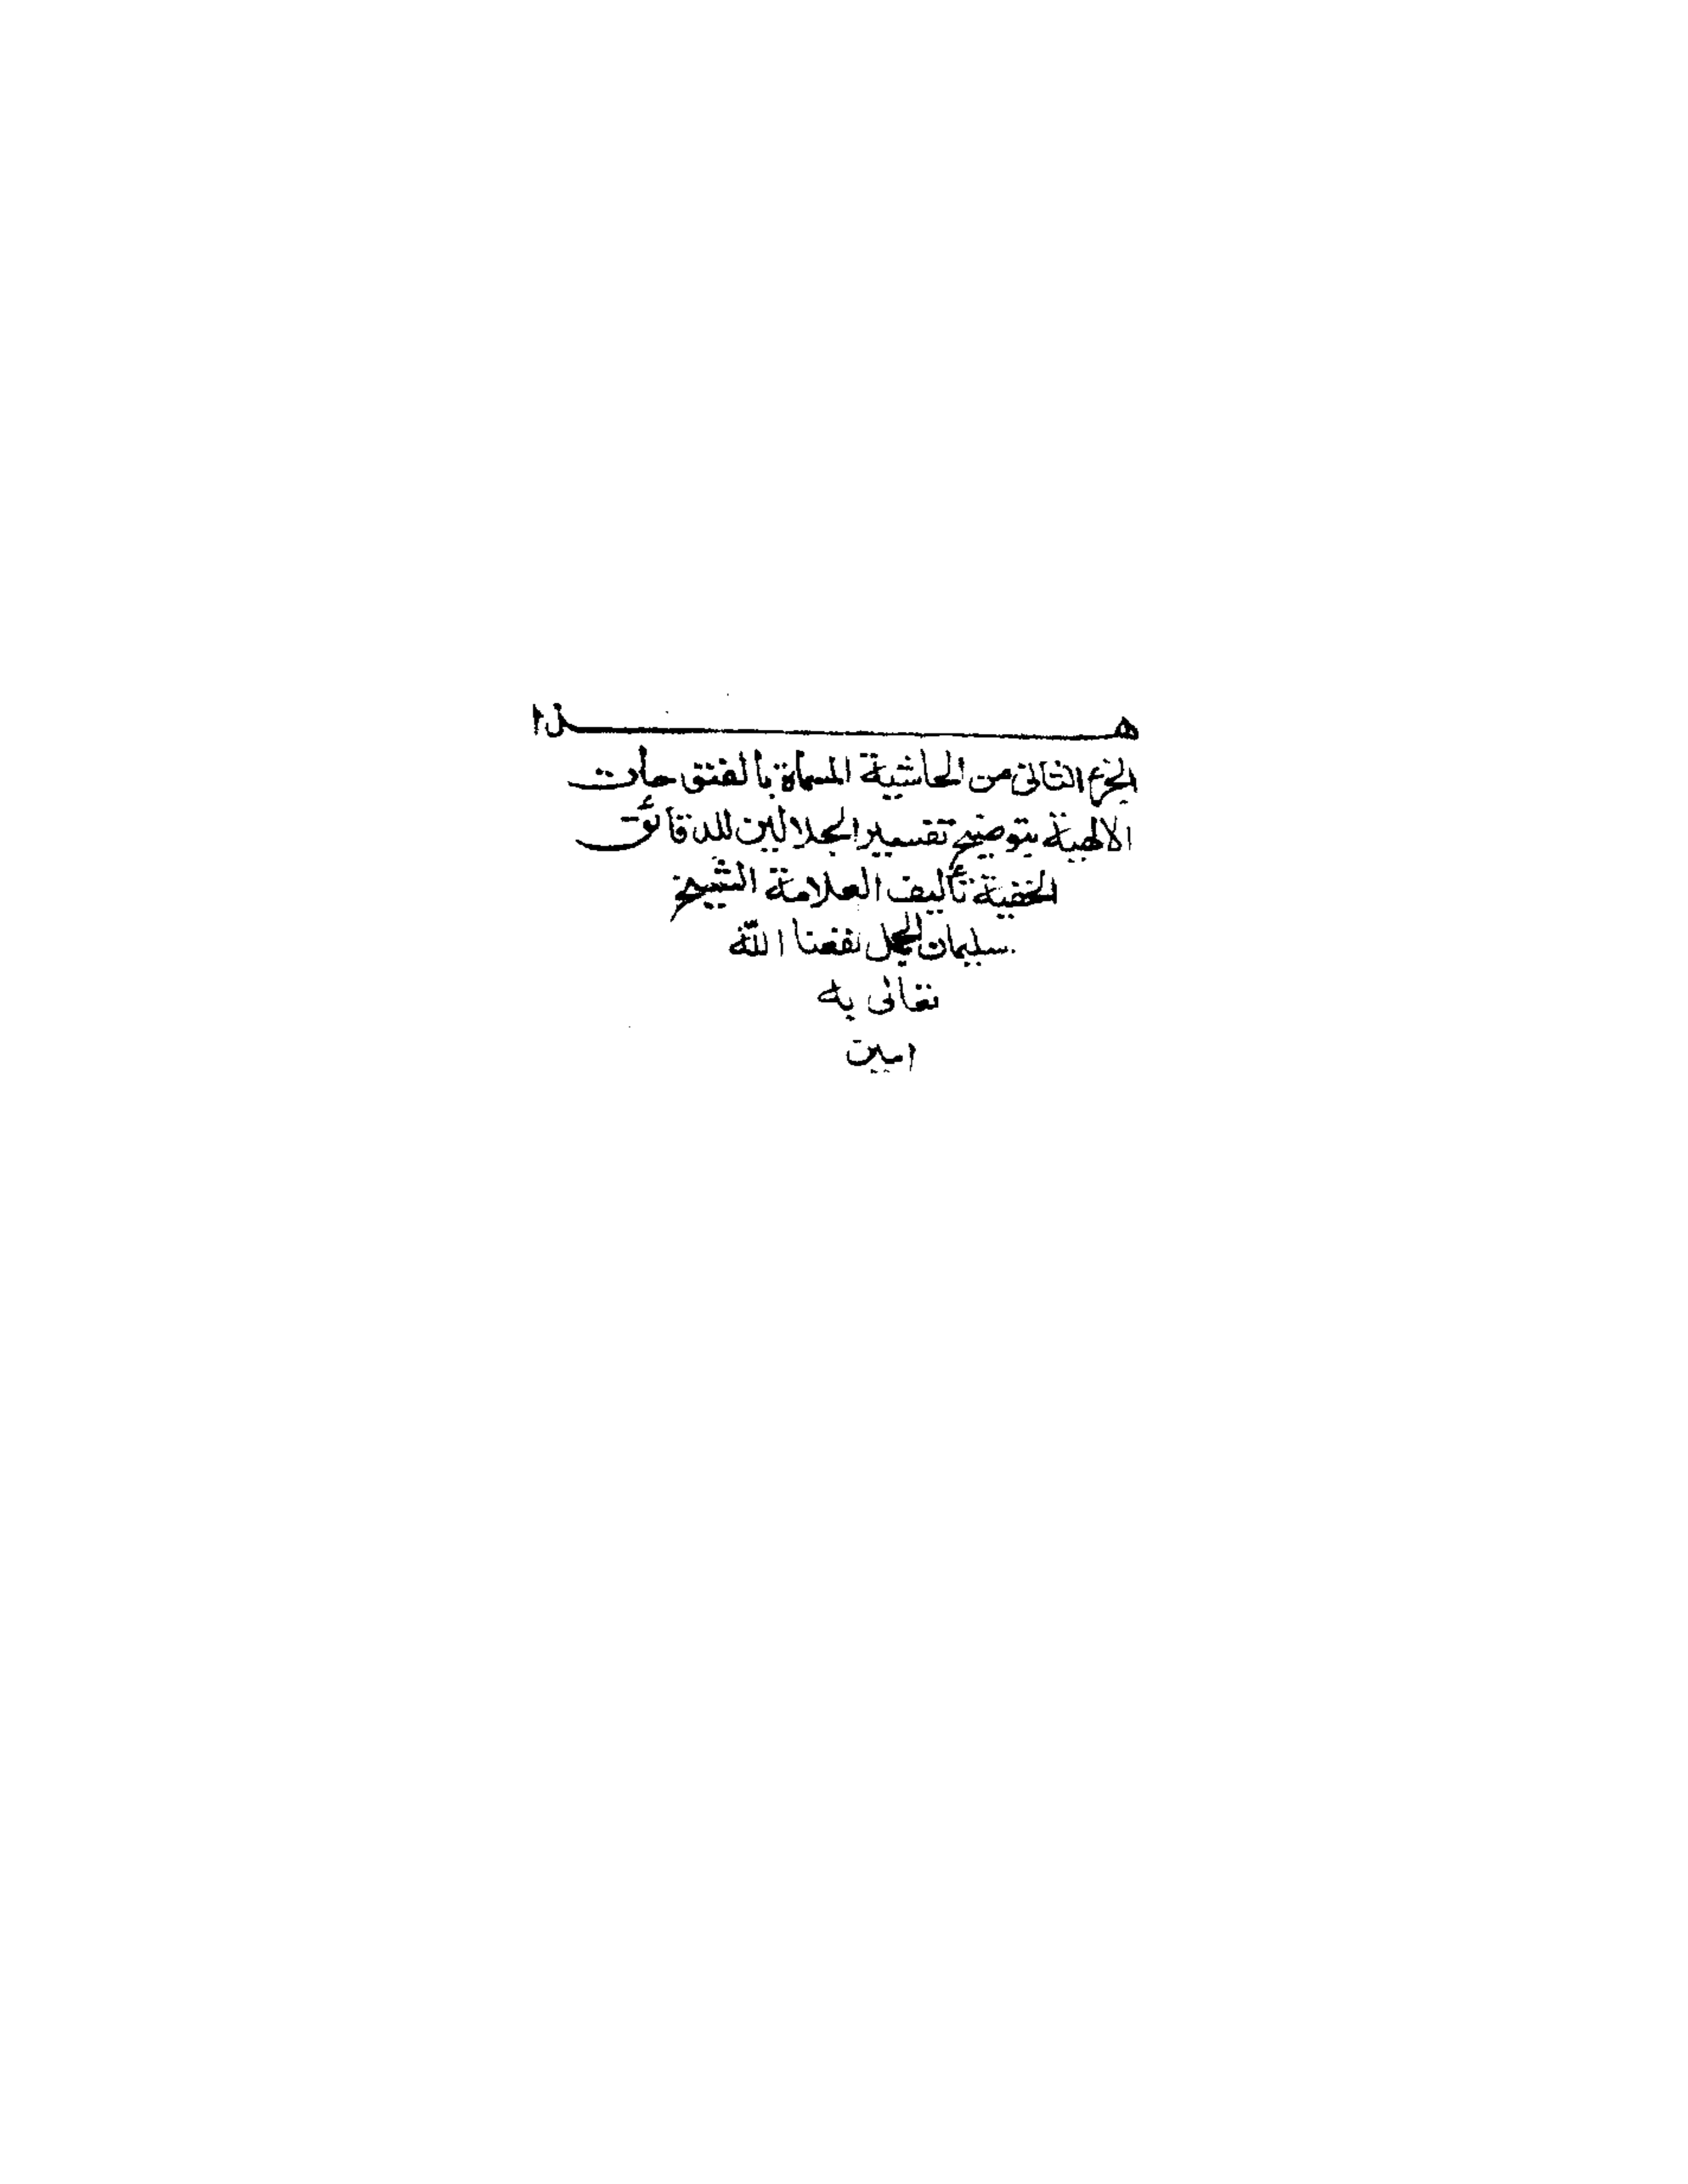 هـــــــــذا
الجزء الثانى من الحاشية المسماة بالفتوحات
الالهية بتوضيح تفسير الجلالين للدقائق
الخفية تأليف العلامة الشيخ
سليمان الجمل نفعنا الله
تعالى به
امين